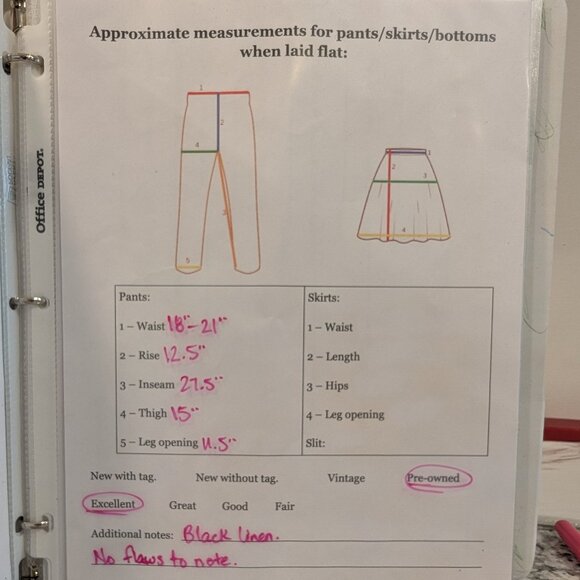 Approximate measurements for pants/skirts/bottoms
when laid flat:
1
2
4
3
5
1
2
3
4
Office DEPOT.
Pants:
1 – Waist 18"-21"
2 – Rise 12.5"
3 – Inseam 27.5"
4 – Thigh 15"
5 – Leg opening 11.5"
Skirts:
1 – Waist
2 – Length
3 – Hips
4 – Leg opening
Slit:
New with tag. New without tag. Vintage Pre-owned
Excellent Great Good Fair
Additional notes: Black linen.
No flaws to note.